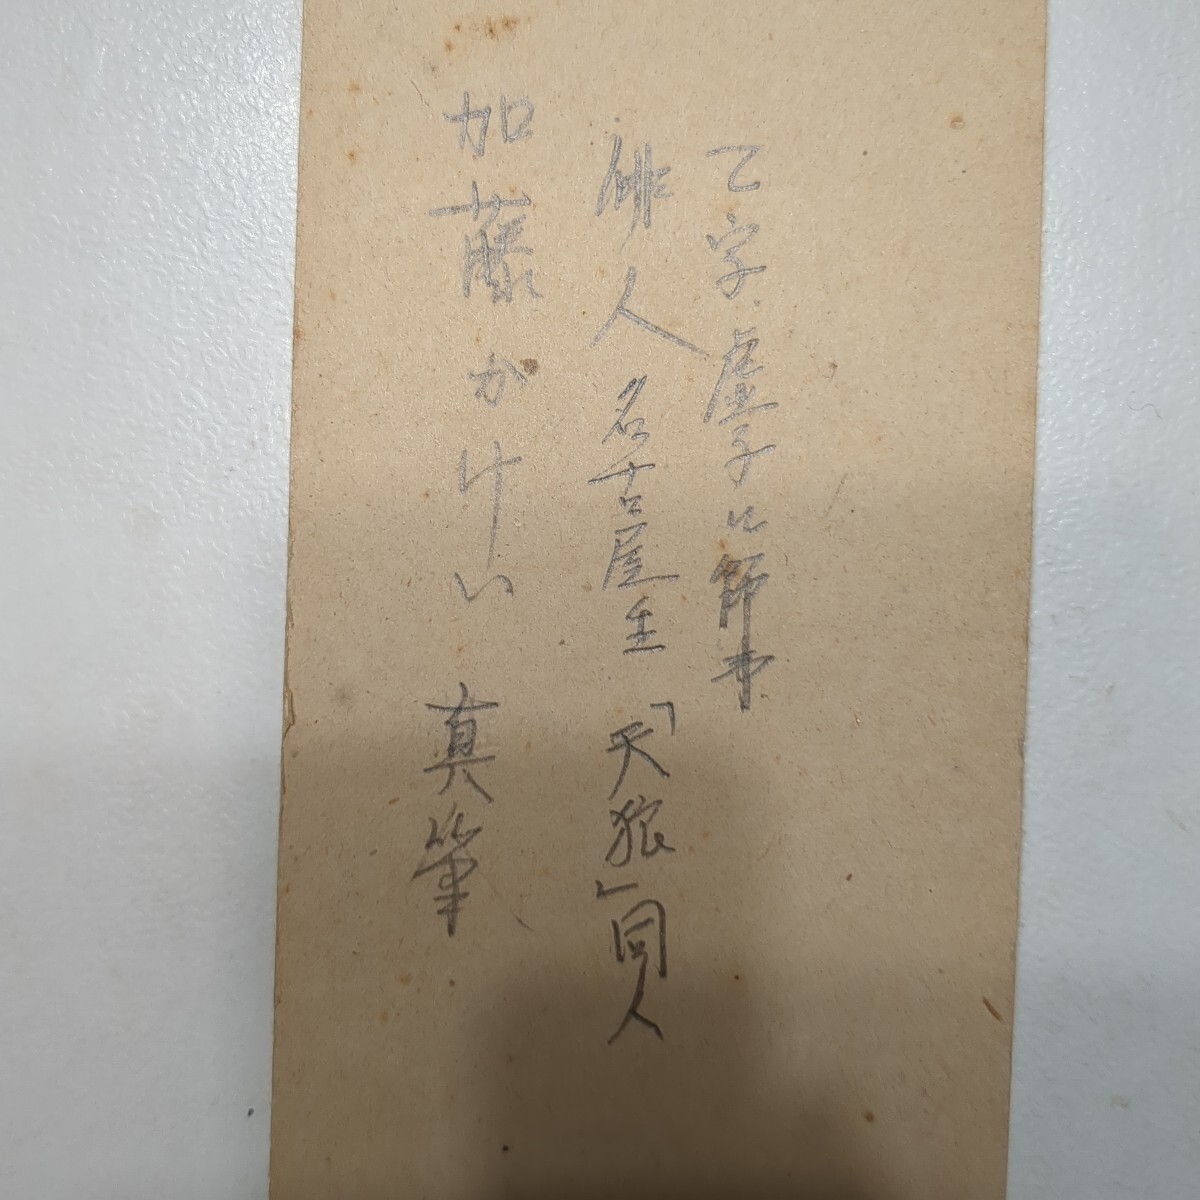 乙字、虚子に師事
俳人 名古屋生 「天狼」同人
加藤かけい 真筆